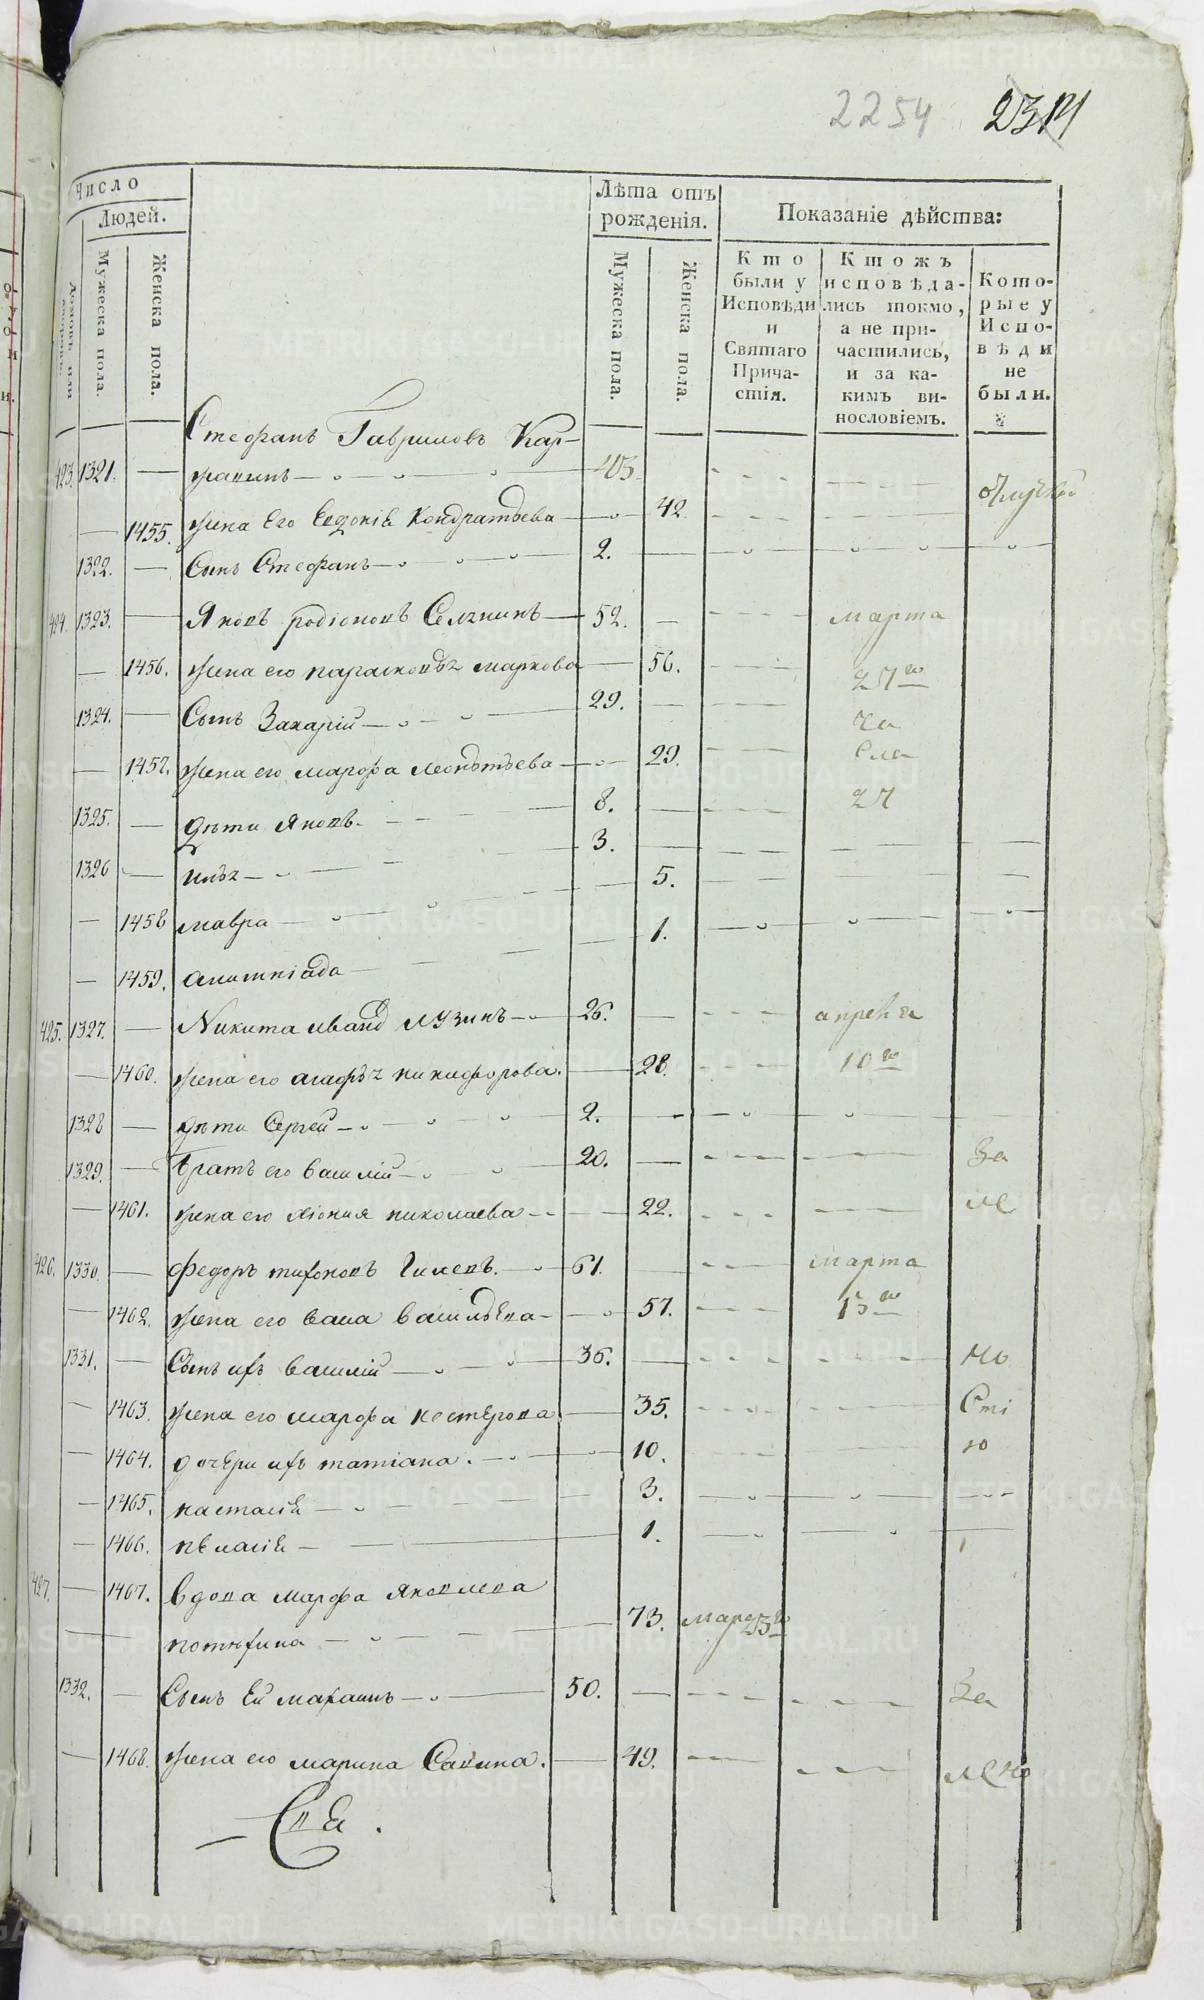 2254 2314
Число
Людей.
Лѣта отъ рожденія.
Показаніе дѣйства:
Домовъ или дворовъ.
Мужеска пола.
Женска пола.
Мужеска пола.
Женска пола.
Кто были у Исповѣди и Святаго Причастія.
Ктожъ исповѣдались токмо, а не причастились, и за какимъ винословіемъ.
Которые у Исповѣди не были.
Стефанъ Гавриловъ Кар-
423. 1321. 43.
1455. жена Его Евдокіѣ Кондратьева 42
1322. Сынъ Стефанъ 2.
424. 1323. Яковъ родіоновъ Селянинъ 52. марта
1456. жена его парасковья маркова 56. 27го
1324. Сынъ Захарій 29.
1457. жена его марфа леонтьева 29.
1325. дѣти Яковъ 8.
1326 илья 3.
1458 мавра 5.
1459. алимпіада 1.
425. 1327. Никита иванов лузинъ 26. апреля
1460. жена его агафья никифорова. 28. 10го
1328 дѣти Сергей 2.
1329. Братъ его василій 20. За
1461. жена его хіония николаева 22. ле
426. 1330. федоръ тихоновъ Гилевъ. 61. марта
1462. жена его васа васильева 57. 13го
1331. Сынъ ихъ василій 36. но
1463. жена его марфа нестерова 35. Сті
1464. дочери ихъ татіана. 10. ю
1465. настасіѣ 3.
1466. пелагіѣ 1.
427. 1467. вдова марфа яковлева
потехина 73. мар 23го
1332. Сынъ Ей 50. За
1468. жена его марина Савина. 49. лено